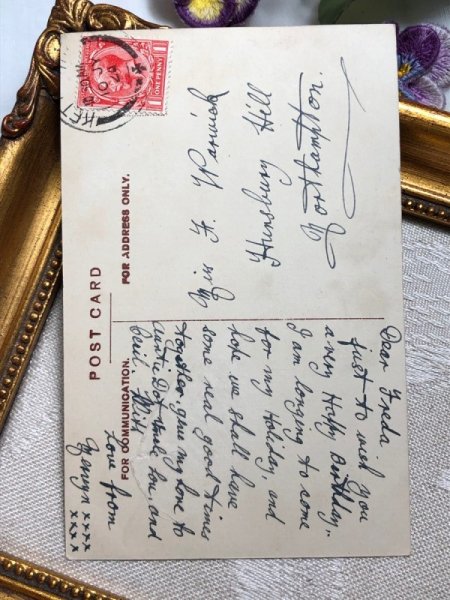 POST CARD
FOR COMMUNICATION.
FOR ADDRESS ONLY.
ONE PENNY
Dear Freda
just to wish you
a very Happy Birthday.
I am longing to come
for my Holiday, and
hope we shall have
some real good times
together give my love to
Auntie Dot Uncle Lou and
love from
xxxx
xxxx
Miss F. Warwick
Hunsbury Hill
Northampton.